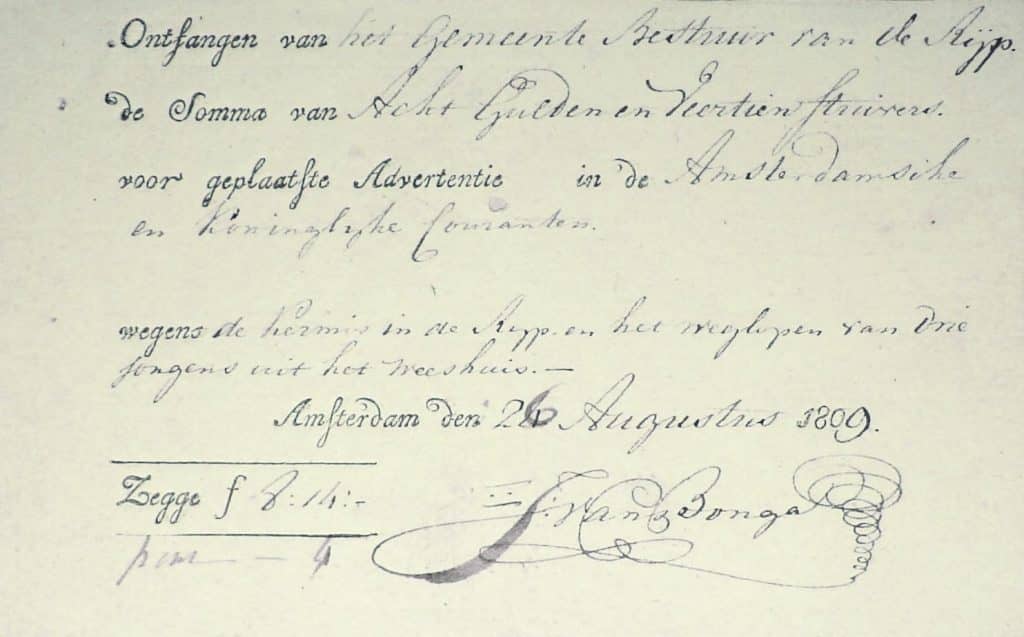 Ontfangen van het Gemeente Bestuur van de Ryp.
de Somma van Acht Gulden en Veertien stuivers.
voor geplaatste Advertentie in de Amsterdamsche
en Koninglyke Couranten.
wegens de kermis in de Ryp. en het weglopen van Drie
Jongens uit het Weeshuis. —
Amsterdam den 26 Augustus 1809.
Zegge f 8:14:-
Van Bonga
— 4